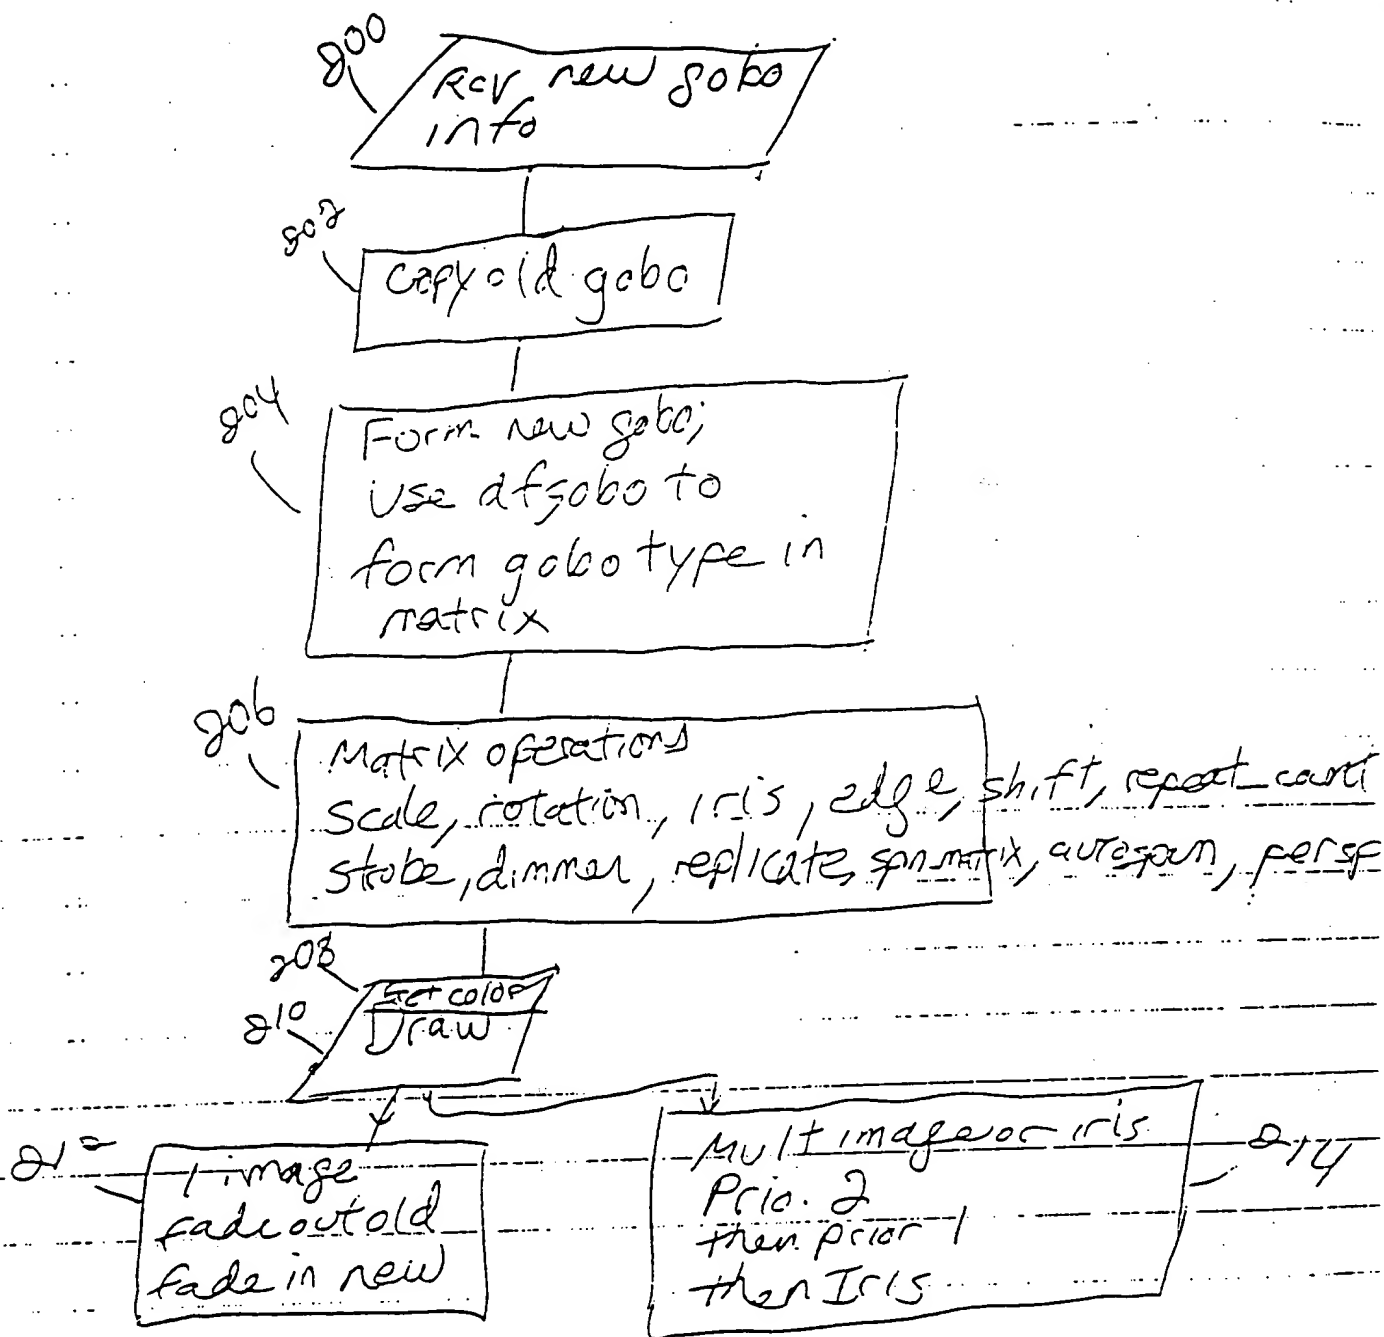 800
Rcv new gobo
info
802
Copy old gobo
804
Form new gobo;
Use dfgobo to
form gobo type in
matrix
806
Matrix operations
scale, rotation, iris, edge, shift, repeat_count
strobe, dimmer, replicate, spn matrix, autospun, persp
808
Set color
810
Draw
812
1 image
fade out old
fade in new
Mult image or iris
Prio. 2
then prior 1
then Iris
814